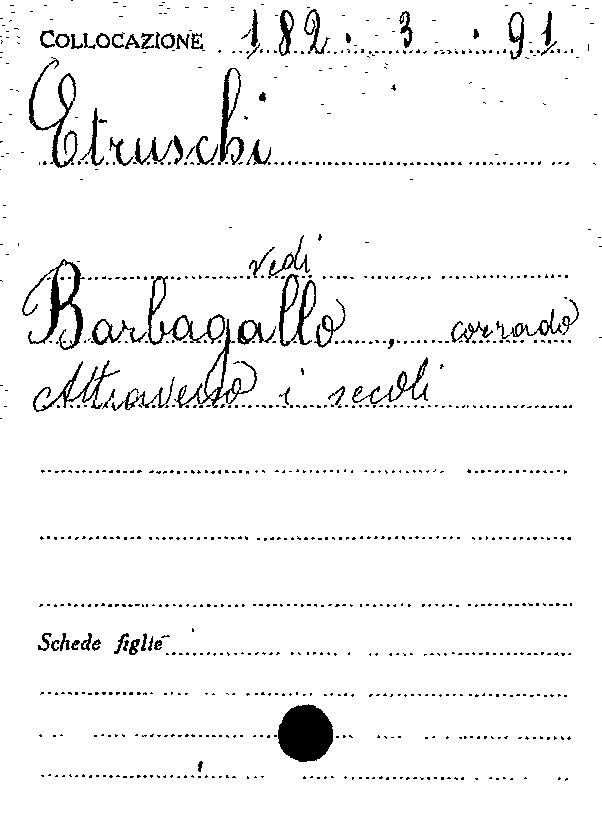 COLLOCAZIONE 182. 3 . 91
Etruschi
vedi
Barbagallo, corrado
Attraverso i secoli
Schede figlie